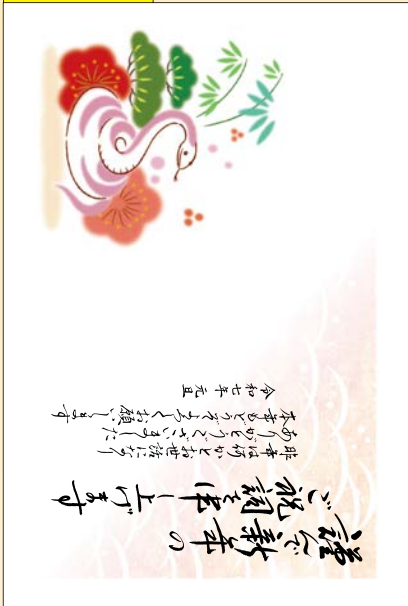 謹んで新年の
ご祝詞を申し上げます
昨年は何かとお世話になり
ありがとうございました
本年もどうぞよろしくお願いします
令和七年 元旦